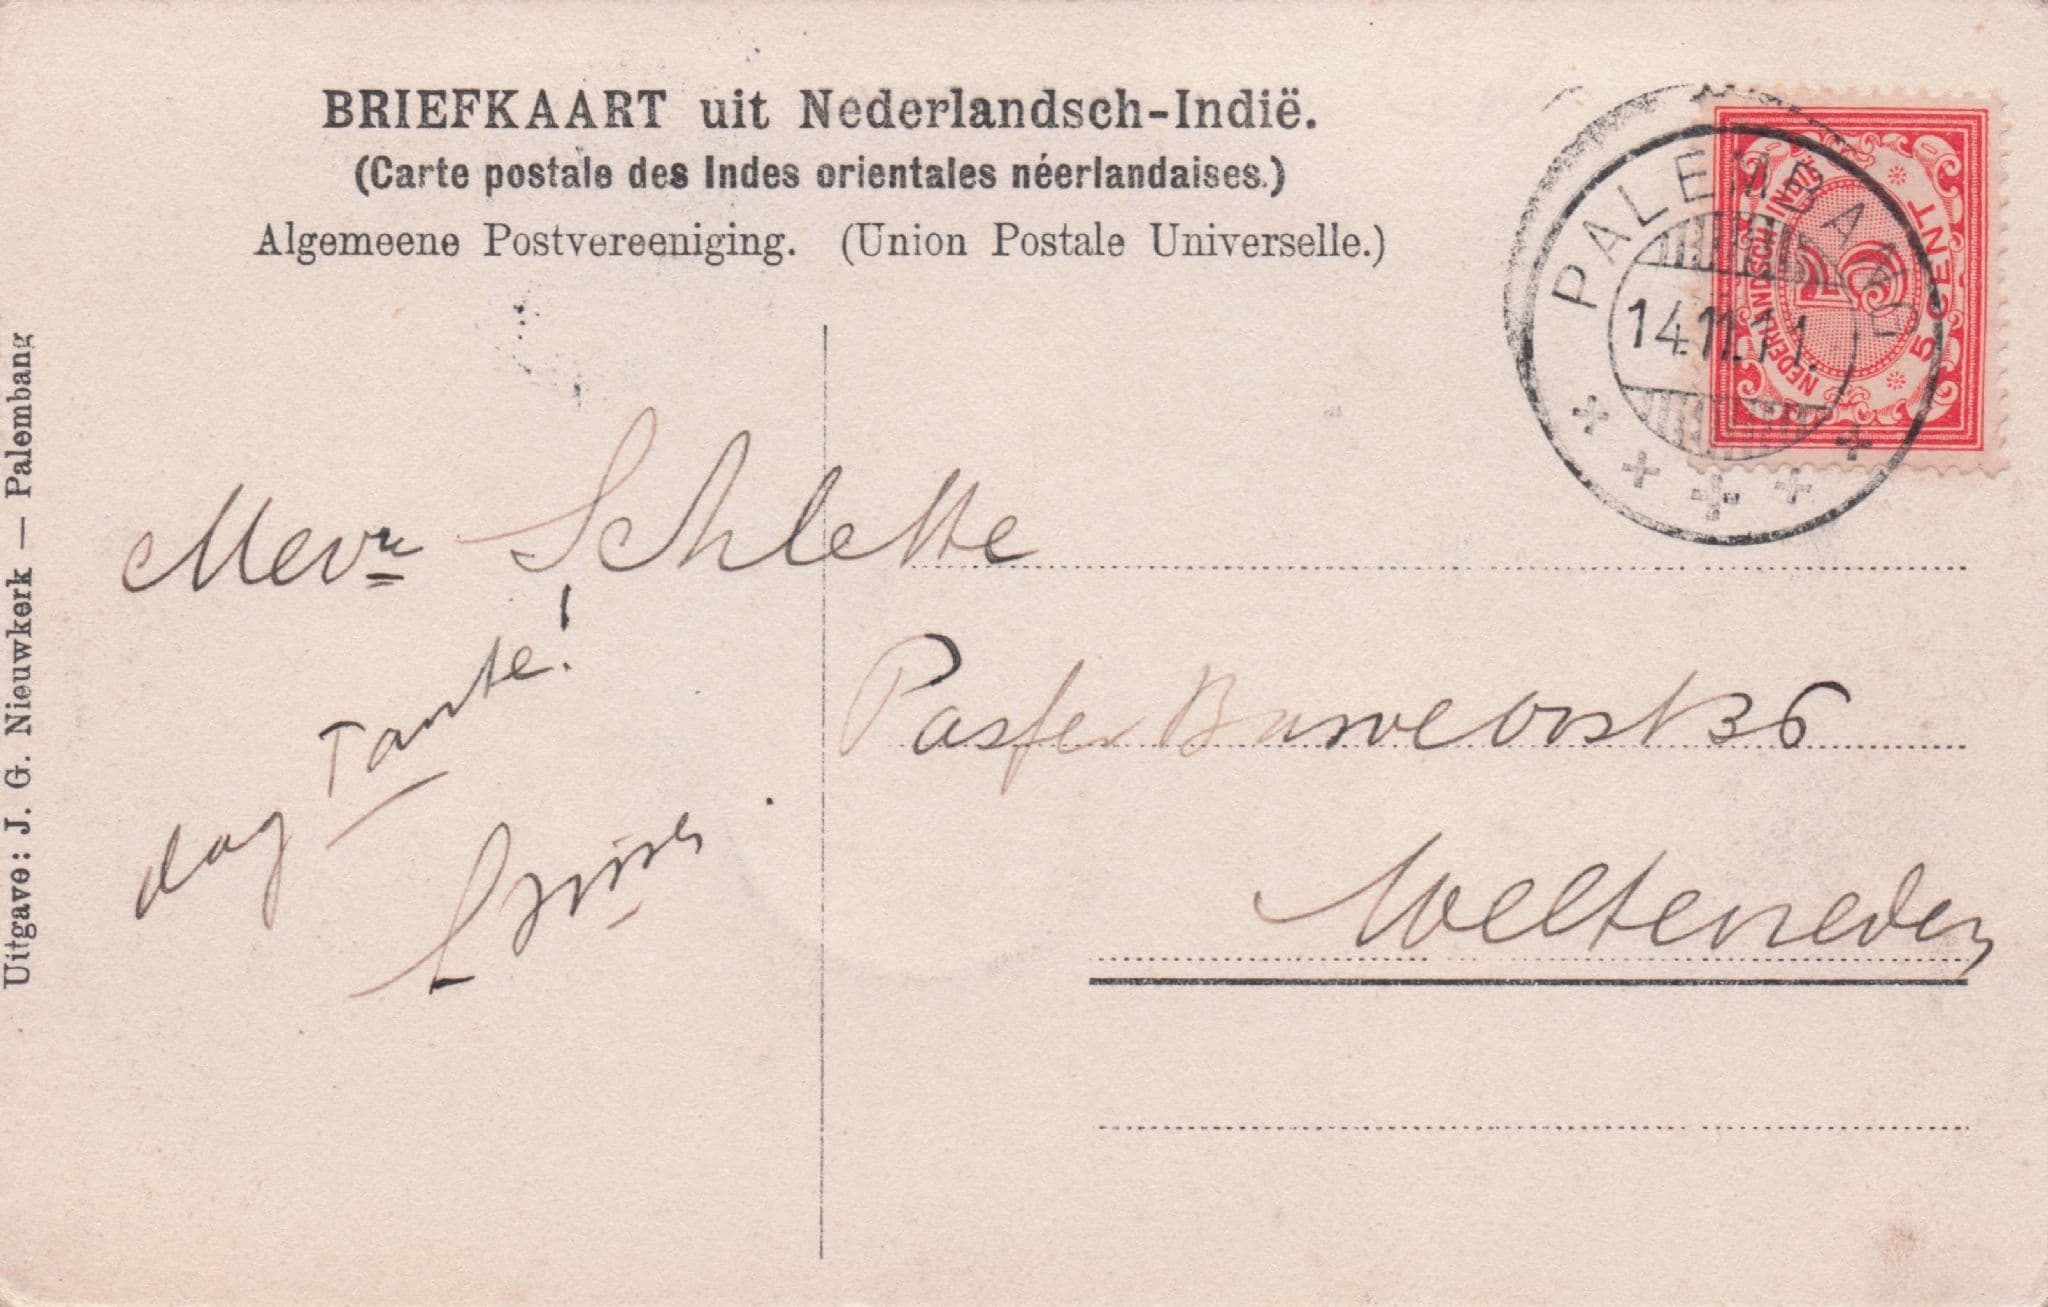 BRIEFKAART uit Nederlandsch-Indië.
(Carte postale des Indes orientales néerlandaises.)
Algemeene Postvereeniging. (Union Postale Universelle.)
PALEMBANG
14.11.11.
NEDERLANDSCH-INDIË
5 CENT
Uitgave: J. G. Nieuwkerk — Palembang
Mevr Schlette
Paser Baroe oost 36
Weltevreden
dag Tante!